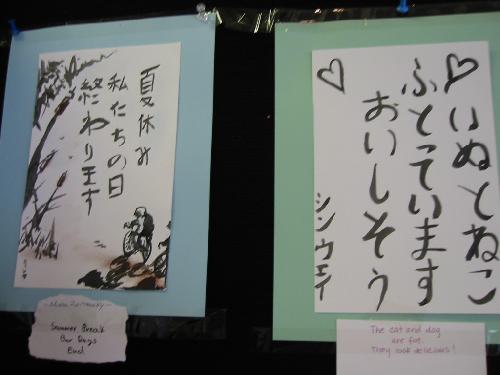 夏休み
私たちの日
終わります
Summer Break
Our Days
End
♡いぬとねこ
ふとっています
おいしそう
♡
シンウェイ
The cat and dog
are fat.
They look delicious!